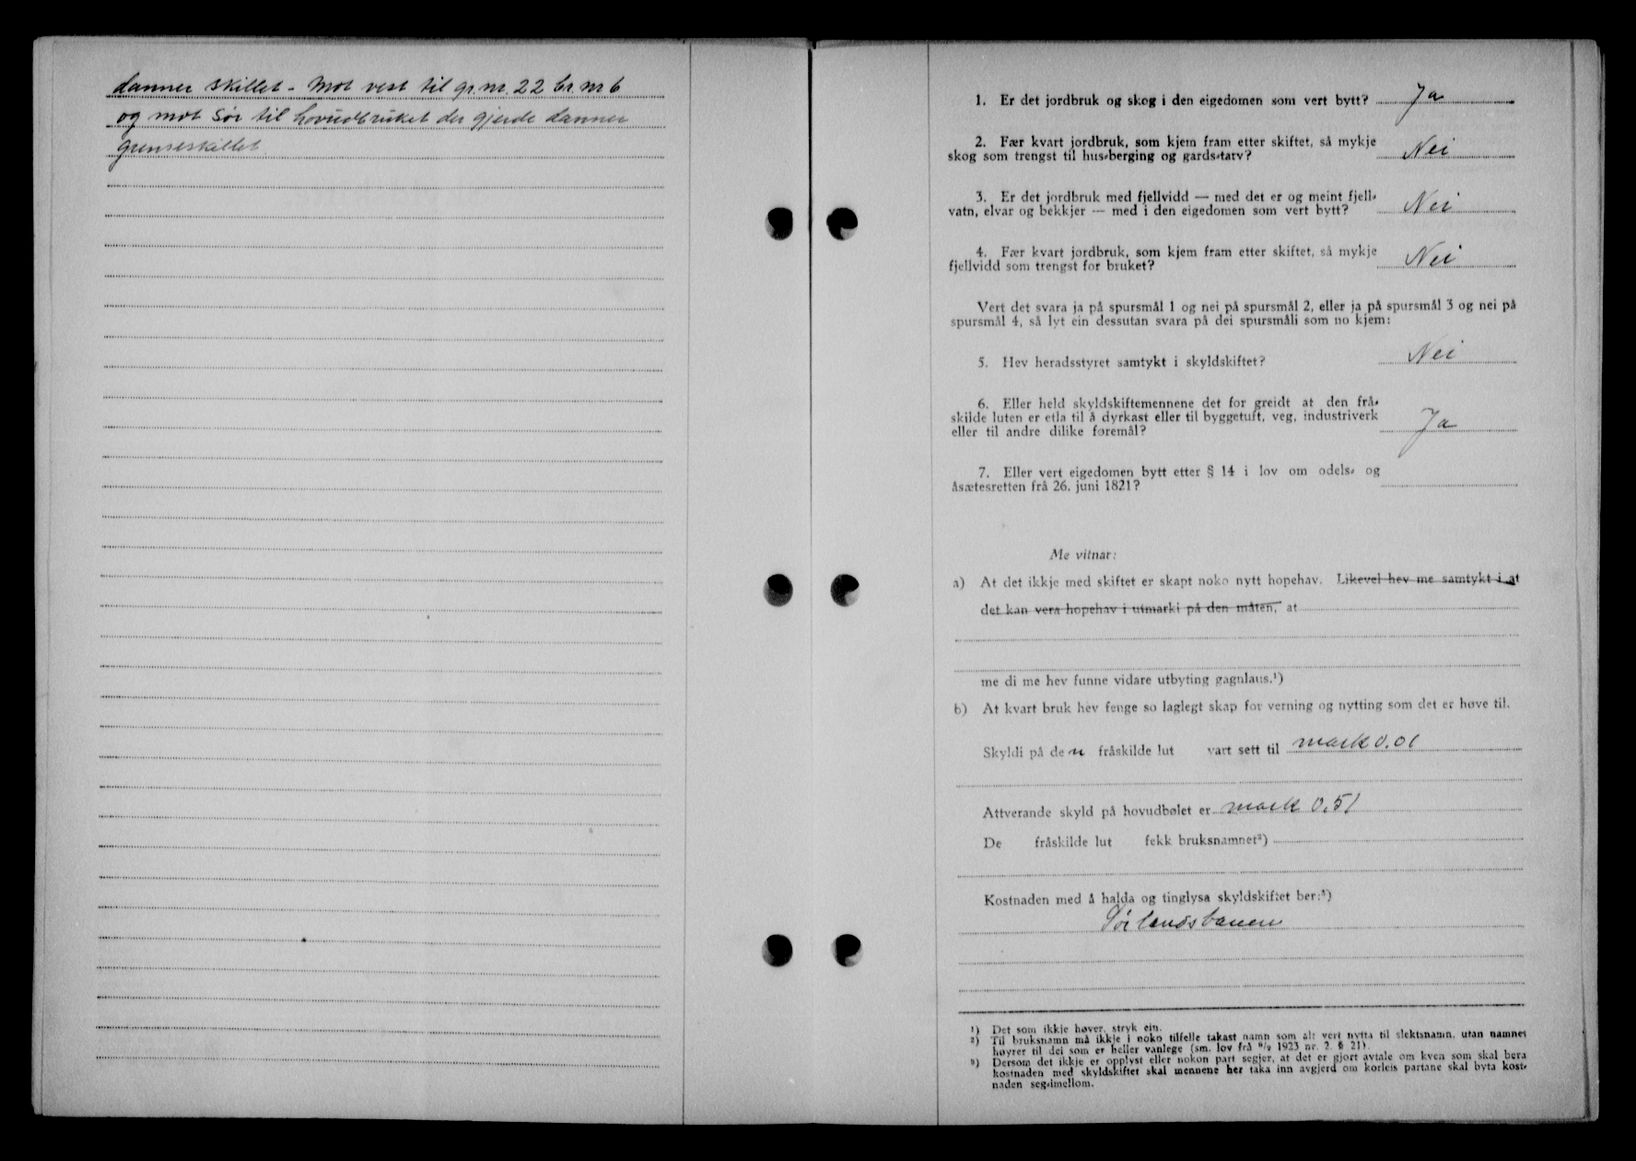 danner skillet - Mot vest til gr. nr. 22 br nr 6
og mot Sør til hovudbruket der gjerde danner
grenseskillet
1. Er det jordbruk og skog i den eigedomen som vert bytt? Ja
2. Fær kvart jordbruk, som kjem fram etter skiftet, så mykje
skog som trengst til hus-berging og gards-tarv? Nei
3. Er det jordbruk med fjellvidd — med det er og meint fjell-
vatn, elvar og bekkjer — med i den eigedomen som vert bytt? Nei
4. Fær kvart jordbruk, som kjem fram etter skiftet, så mykje
fjellvidd som trengst for bruket? Nei
Vert det svara ja på spursmål 1 og nei på spursmål 2, eller ja på spursmål 3 og nei på
spursmål 4, så lyt ein dessutan svara på dei spursmåli som no kjem:
5. Hev heradsstyret samtykt i skyldskiftet? Nei
6. Eller held skyldskiftemennene det for greidt at den frå-
skilde luten er etla til å dyrkast eller til byggetuft, veg, industriverk
eller til andre dilike føremål? Ja
7. Eller vert eigedomen bytt etter § 14 i lov om odels- og
åsætesretten frå 26. juni 1821?
Me vitnar:
a) At det ikkje med skiftet er skapt noko nytt hopehav. Likevel hev me samtykt i at
det kan vera hopehav i utmarki på den måten, at
me di me hev funne vidare utbyting gagnlaus.¹)
b) At kvart bruk hev fenge so laglegt skap for verning og nytting som det er høve til.
Skyldi på den fråskilde lut vart sett til mark 0.01
Attverande skyld på hovudbølet er mark 0.51
De fråskilde lut fekk bruksnamnet²)
Kostnaden med å halda og tinglysa skyldskiftet ber:³)
Sørlandsbanen
¹) Det som ikkje høver, stryk ein.
²) Til bruksnamn må ikkje i noko tilfelle takast namn som alt vert nytta til slektsnamn, utan namnet
høyrer til dei som er heller vanlege (sm. lov frå 9/2 1923 nr. 2. § 21).
³) Dersom det ikkje er opplyst eller nokon part segjer, at det er gjort avtale om kven som skal bera
kostnaden med skyldskiftet skal mennene her taka inn avgjerd om korleis partane skal byta kost-
naden seg-imellom.